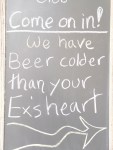 Come on in!
We have
Beer colder
than your
Exs heart